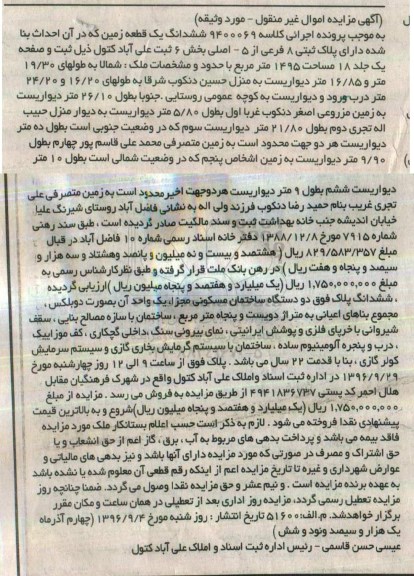 (آگهی مزایده اموال غیر منقول - مورد وثیقه)
به موجب پرونده اجرائی کلاسه ۹۴۰۰۰۶۹ ششدانگ یک قطعه زمین که در آن احداث بنا
شده دارای پلاک ثبتی ۸ فرعی از ۵ - اصلی بخش ۶ ثبت علی آباد کتول ذیل ثبت و صفحه
یک جلد ۱۸ مساحت ۱۴۹۵ متر مربع با حدود و مشخصات ملک : شمالا به طولهای ۱۹/۳۰
متر و ۱۶/۸۵ متر دیواریست به منزل حسین دنکوب شرقا به طولهای ۱۶/۲۰ و ۲۴/۲۰
متر درب ورود و دیواریست به کوچه عمومی روستایی .جنوبا بطول ۲۶/۱۰ متر دیواریست
به زمین مزروعی اصغر دنکوب غربا اول بطول ۵/۸۰ متر دیواریست به دیوار منزل حبیب
اله تجری دوم بطول ۲۱/۸۰ متر دیواریست سوم که در وضعیت جنوبی است بطول ده متر
دیواریست هر دو جهت محدود است به زمین متصرفی محمد علی قاسم پور چهارم بطول
۹/۹۰ متر دیواریست به زمین اشخاص پنجم که در وضعیت شمالی است بطول ۱۰ متر
دیواریست ششم بطول ۹ متر دیواریست هر دو جهت اخیر محدود است به زمین متصرفی علی
تجری غریب بنام حمید رضا دنکوب فرزند ولی اله به نشانی فاضل آباد روستای شیرنگ علیا
خیابان اندیشه جنب خانه بهداشت ثبت و سند مالکیت صادر گردیده است ، طبق سند رهنی
شماره ۷۹۱۵ مورخ ۱۳۸۸/۱۲/۸ دفتر خانه اسناد رسمی شماره ۱۰ فاضل آباد در قبال
مبلغ ۸۲۹/۵۸۳/۳۵۷ ریال (هشتصد و بیست و نه میلیون و پانصد وهشتاد و سه هزار و
سیصد و پنجاه و هفت ریال ) در رهن بانک ملت قرار گرفته و طبق نظر کارشناس رسمی به
مبلغ ۱,۷۵۰,۰۰۰,۰۰۰ ریال (یک میلیارد و هفتصد و پنجاه میلیون ریال )ارزیابی گردیده
، ششدانگ پلاک فوق دو دستگاه ساختمان مسکونی مجزا، یک واحد آن بصورت دوبلکس ،
مجموع بناهای اعیانی به متراژ دویست و پنجاه متر مربع ، ساختمان با سازه مصالح بنایی ، سقف
شیروانی با خرپای فلزی و پوشش ایرانیتی ، نمای بیرونی سنگ ،داخلی گچکاری ، کف موزاییک
، درب و پنجره آلومینیوم ساده . ساختمان با سیستم گرمایش بخاری گازی و سیستم سرمایش
کولر گازی ، بنا با قدمت ۲۲ سال می باشد . پلاک فوق از ساعت ۹ الی ۱۲ روز چهارشنبه مورخ
۱۳۹۶/۹/۲۹ در اداره ثبت اسناد واملاک علی آباد کتول واقع در شهرک فرهنگیان مقابل
هلال احمر کد پستی ۴۹۴۱۸۳۶۷۳۷ از طریق مزایده به فروش می رسد . مزایده از مبلغ
۱,۷۵۰,۰۰۰,۰۰۰ ریال (یک میلیارد و هفتصد و پنجاه میلیون ریال )شروع و به بالاترین قیمت
پیشنهادی نقدا فروخته می شود . لازم به ذکر است حسب اعلام بستانکار ملک مورد مزایده
فاقد بیمه می باشد و پرداخت بدهی های مربوط به آب ، برق ، گاز اعم از حق انشعاب و یا
حق اشتراک و مصرف در صورتی که مورد مزایده دارای آنها باشد و نیز بدهی های مالیاتی و
عوارض شهرداری و غیره تا تاریخ مزایده اعم از اینکه رقم قطعی آن معلوم شده یا نشده باشد
به عهده برنده مزایده است . و نیم عشر و حق مزایده نقدا وصول می گردد. ضمنا چنانچه روز
مزایده تعطیل رسمی گردد، مزایده روز اداری بعد از تعطیلی در همان ساعت و مکان مقرر
برگزار خواهدشد. م.الف:۵۱۶۰۰ تاریخ انتشار : روز شنبه مورخ ۱۳۹۶/۹/۴ (چهارم آذرماه
یک هزار و سیصد ونود و شش )
عیسی حسن قاسمی - رئیس اداره ثبت اسناد و املاک علی آباد کتول